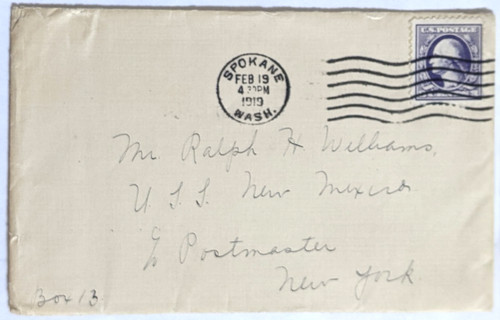 U.S. POSTAGE
SPOKANE
FEB 19
4 30PM
1919
WASH.
Mr. Ralph H Williams,
U. S. S. New Mexico
c/o Postmaster
New York.
Box 13